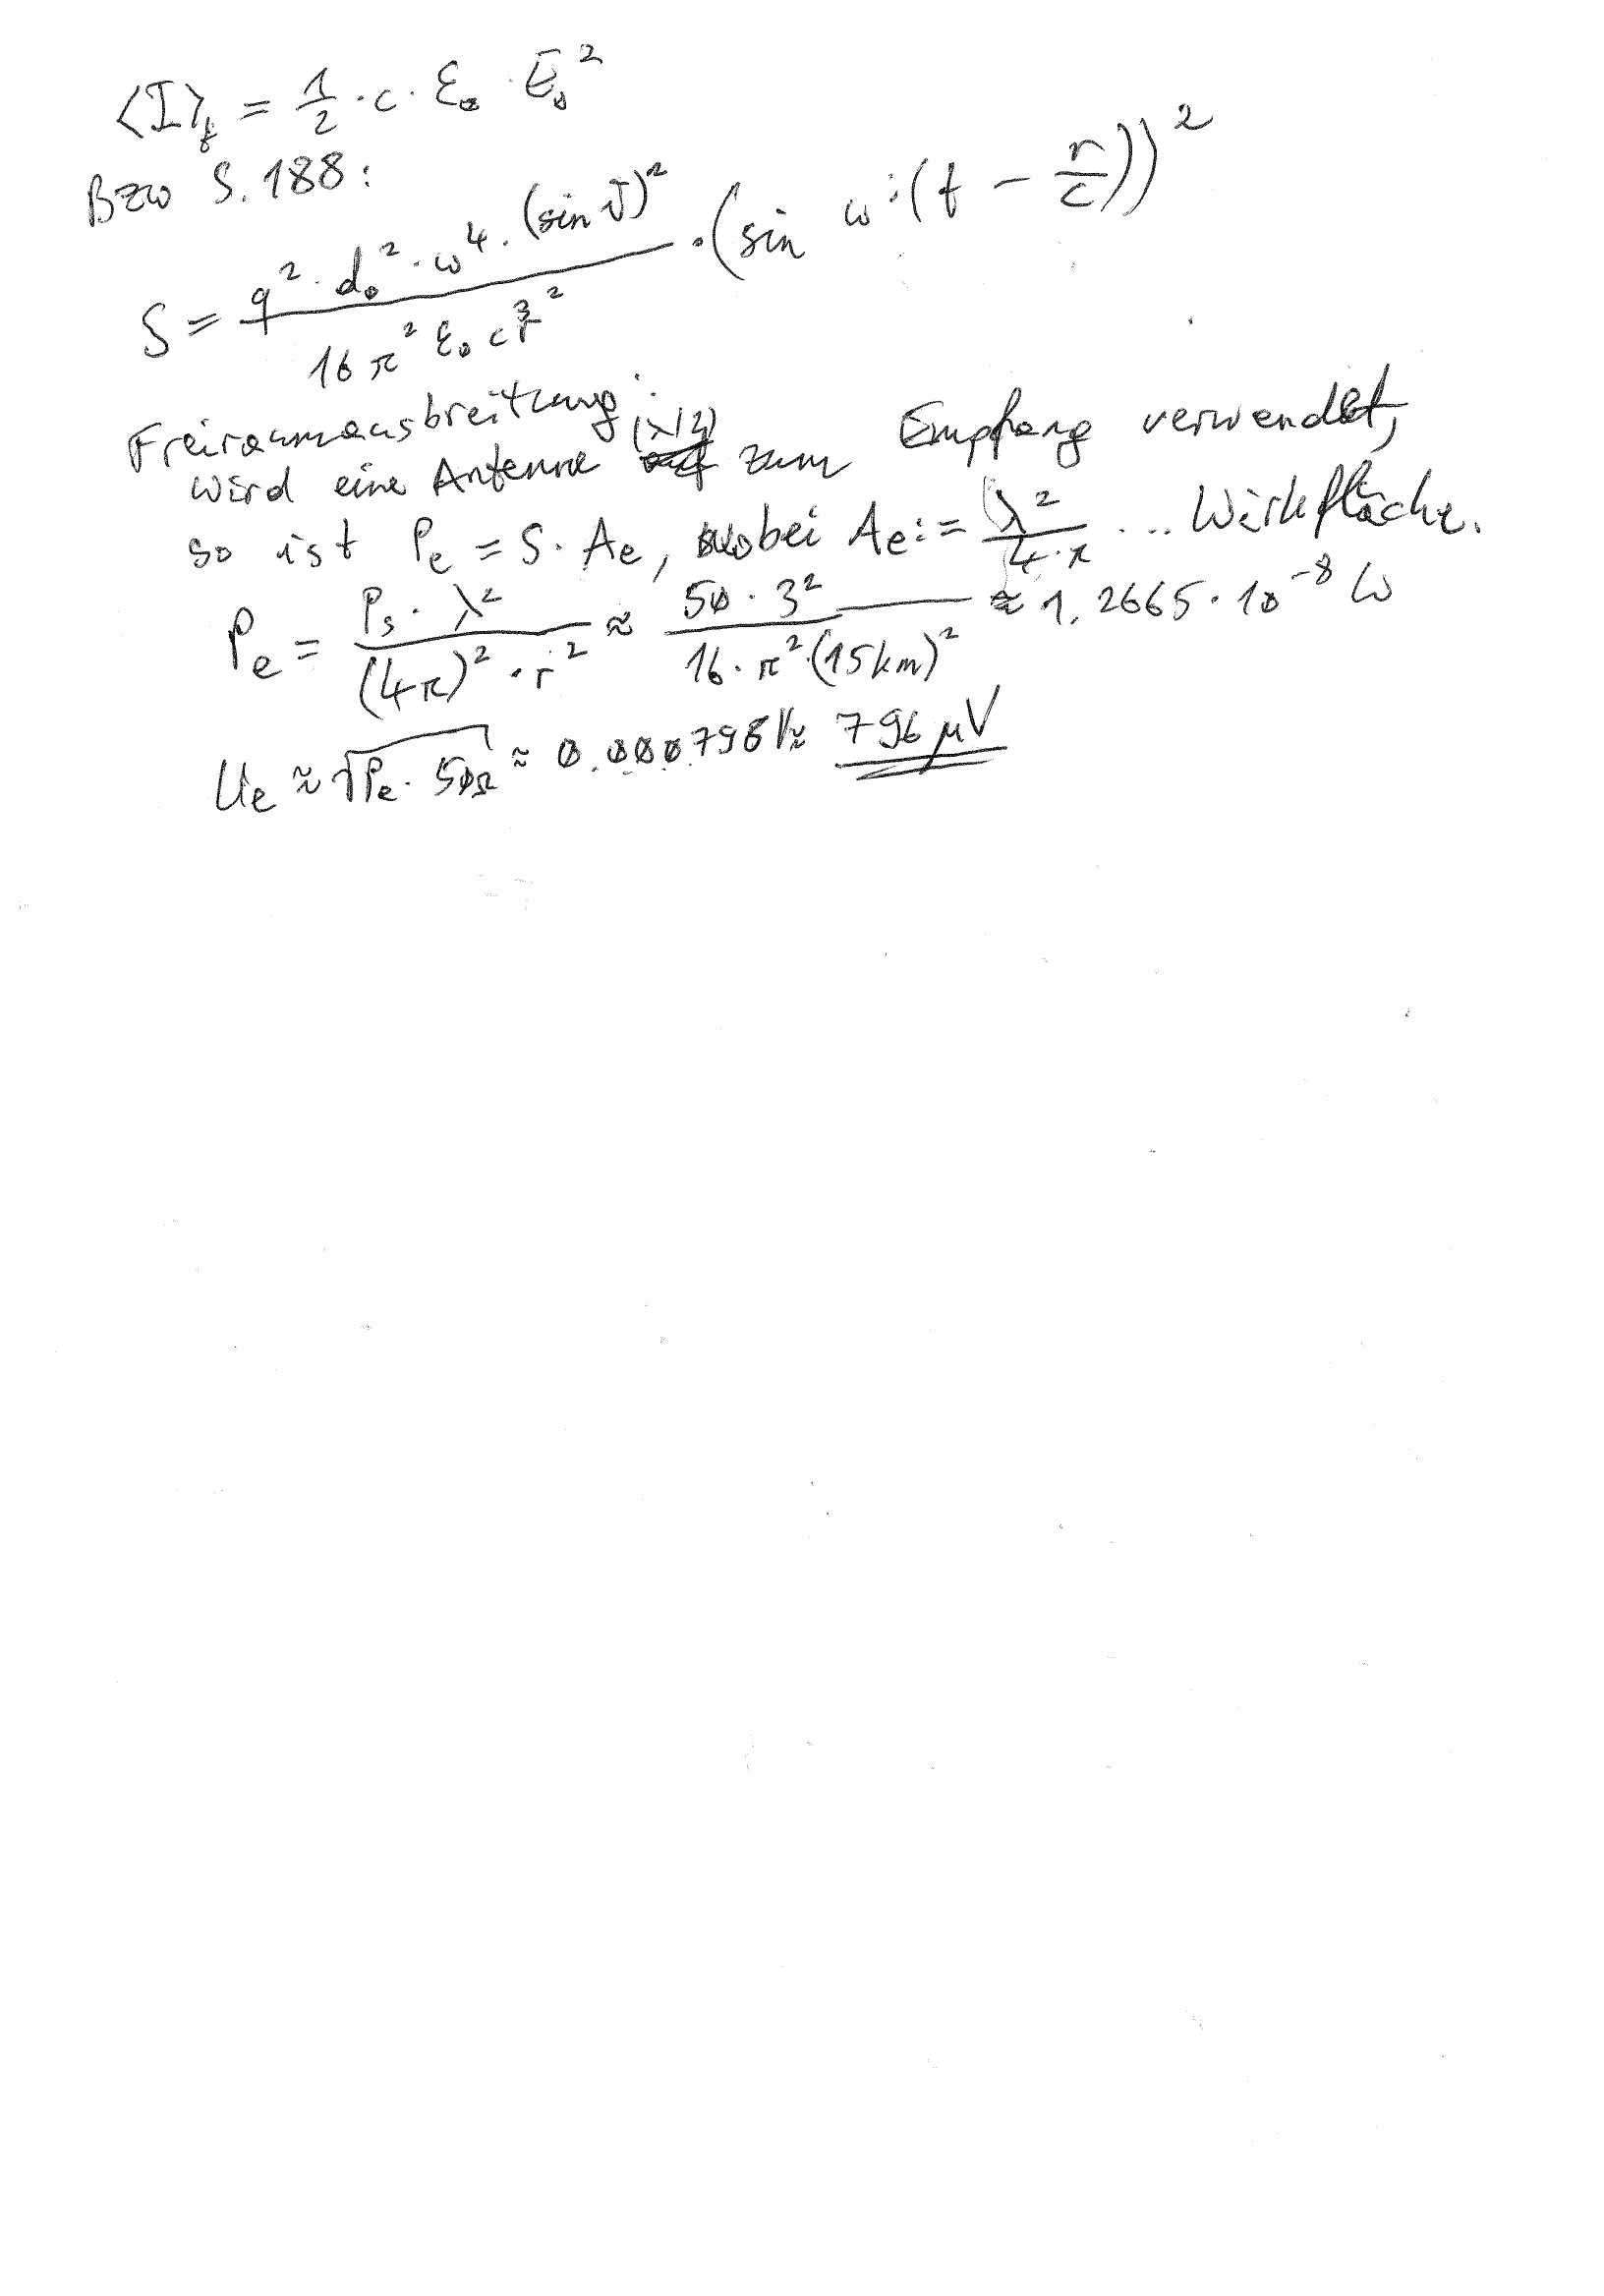 ⟨I⟩_t = 1/2 · c · ε₀ · E₀²
Bzw S. 188:
S = (q² · d₀² · ω⁴ · (sin ϑ)²) / (16 π² ε₀ c³ r²) · (sin ω · (t − r/c))²
Freiraumausbreitung:
wird eine Antenne (λ/4) zum Empfang verwendet,
so ist Pe = S · Ae, wobei Ae := λ² / (4 · π) ... Wirkfläche.
Pe = (Ps · λ²) / ((4π)² · r²) ≈ (50 · 3²) / (16 · π² · (15km)²) ≈ 1.2665 · 10⁻⁸ W
Ue ≈ √(Pe · 50Ω) ≈ 0.000796V ≈ 796 µV